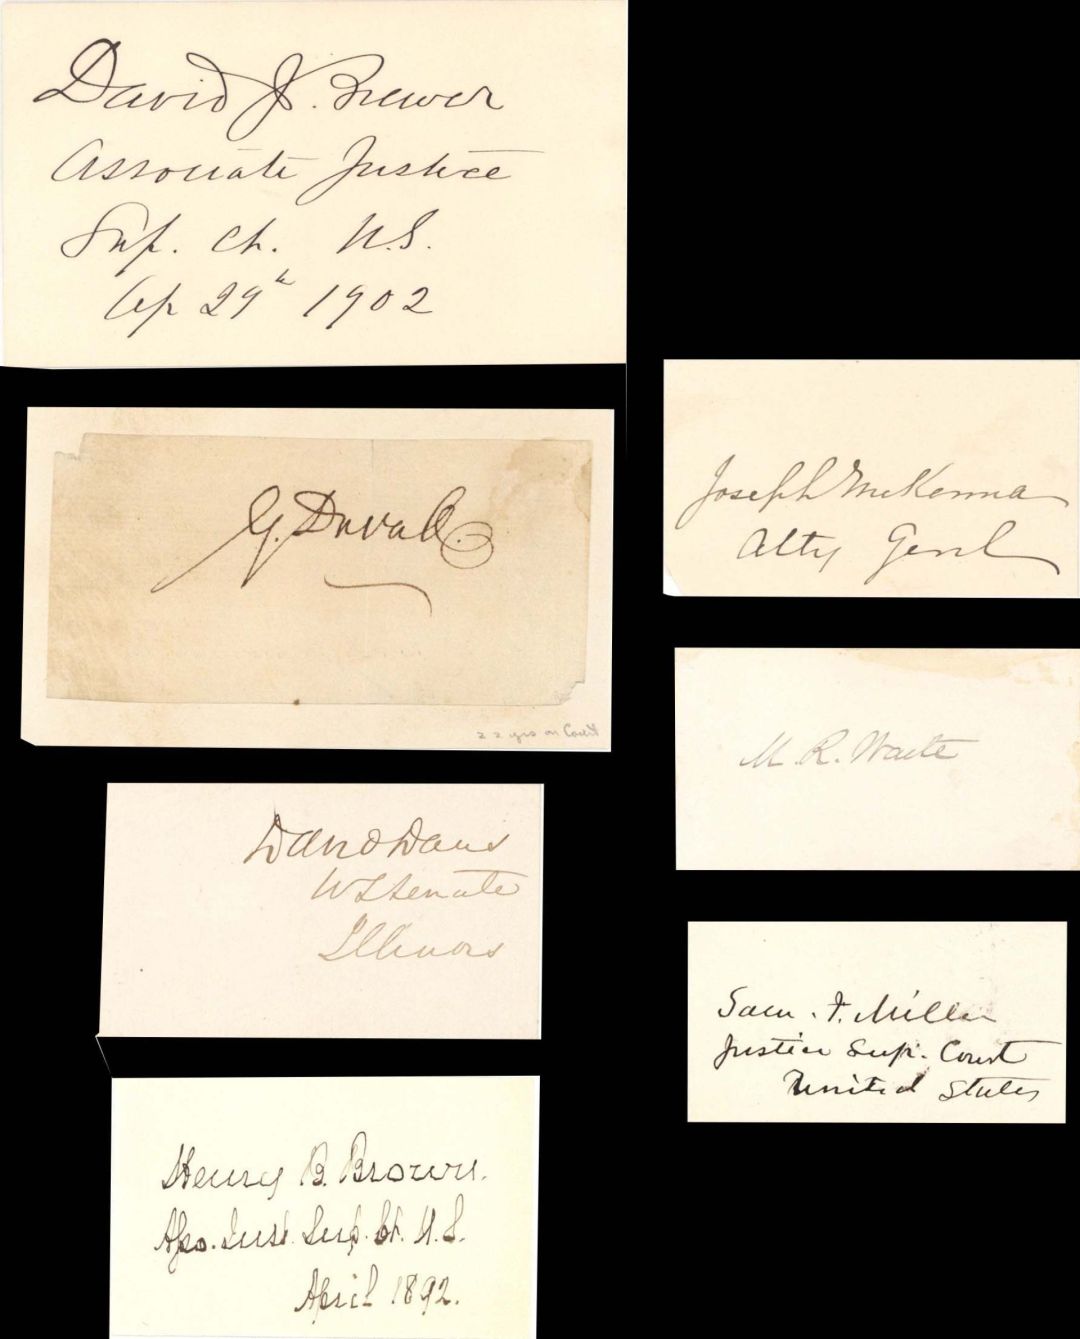 David J. Brewer
Associate Justice
Sup. Ct. U.S.
Ap 29th 1902
G. Duvall.
22 yrs on Court
David Davis
US Senate
Illinois
Henry B. Brown.
Asso. Just. Sup. Ct. U.S.
April 1892.
Joseph McKenna
Atty Genl
M. R. Waite
Sam. F. Miller
Justice Sup. Court
United States